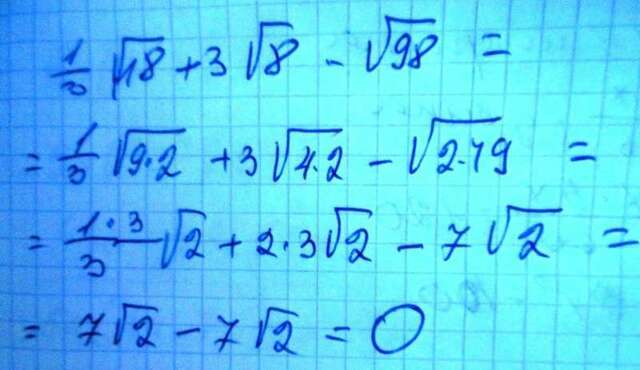 1/3 √18 + 3√8 - √98 =
= 1/3 √9·2 + 3√4·2 - √2·49 =
= 1·3/3 √2 + 2·3√2 - 7√2 =
= 7√2 - 7√2 = 0